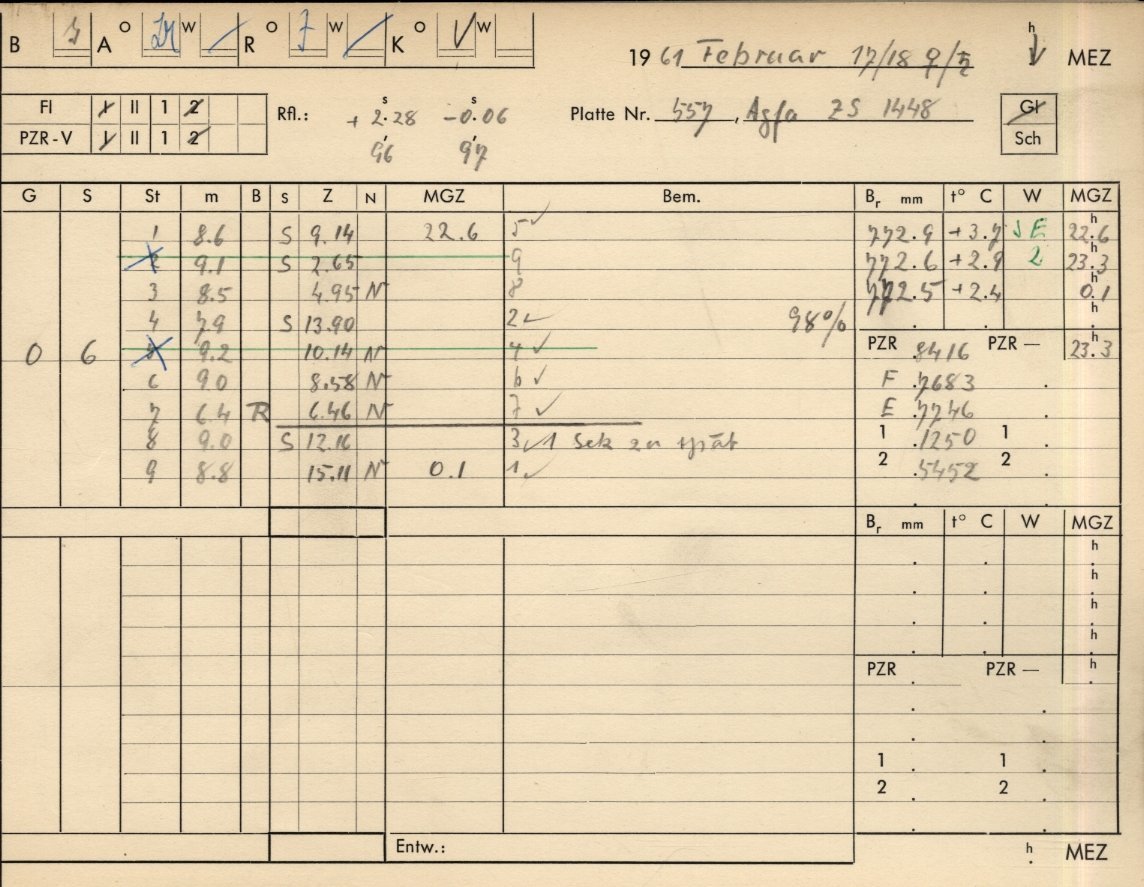 B A O W R O W K O W
19 61 Februar 17/18 ♀/♄ h MEZ
FI I II 1 2 Rfl.: + 2.28 s - 0.06 s Platte Nr. 557, Agfa ZS 1448 Gl
PZR-V I II 1 2 96 97 Sch
G S St m B S Z N MGZ Bem. Br mm t° C W MGZ
1 8.6 S 9.14 22.6 5 ✓ 772.9 +3.7 SE 22.6 h
2 9.1 S 2.65 9 772.6 +2.9 2 23.3 h
3 8.5 4.95 N 8 772.5 +2.4 0.1 h
4 7.9 S 13.90 2 ✓ 98% h
0 6 5 9.2 10.14 N 4 ✓ PZR .8416 PZR — 23.3 h
6 9.0 8.58 N 6 ✓ F .7683
7 6.4 R 6.46 N 7 ✓ E .7746
8 9.0 S 12.16 3 ✓ 1 Sek zu spät 1 .1250 1
9 8.8 15.11 N 0.1 1 ✓ 2 .5452 2
Br mm t° C W MGZ
h
h
h
h
PZR PZR — h
1 1
2 2
Entw.: h MEZ